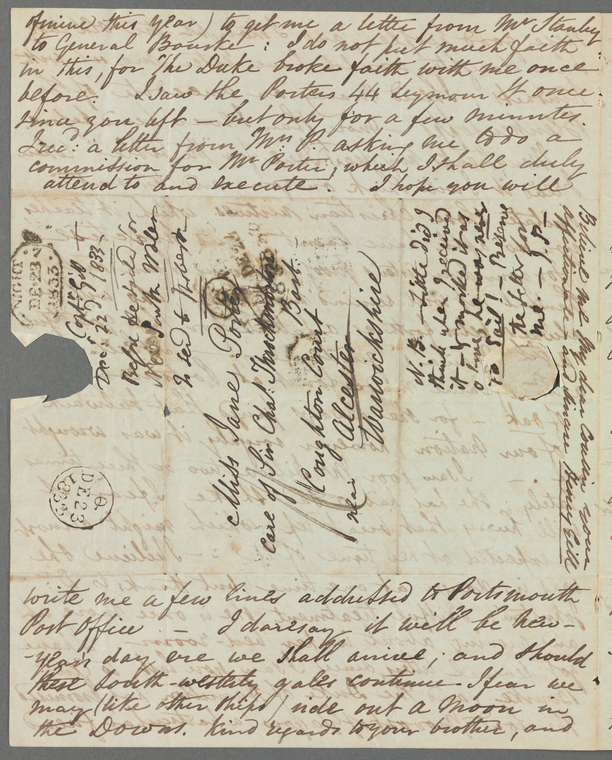 of mine this year) to get me a letter from Mr Stanley
to General Bourke: I do not put much faith
in this, for The Duke broke faith with me once
before. I saw the Porters 44 Seymour St once
since you left – but only for a few minutes.
I recd: a letter from Mrs P. asking me to do a
commission for Mr Porter, which I shall duly
attend to and execute. I hope you will
Believe me My dear Cousin your
affectionate and sincere Henry Gill
N.B. – Little did I
think when I received
it – &
to Sail! – Preserve
the letter for
me. – J. P. –
Miss Jane Porter
Care of Sir Chas. Throckmorton
Bart.
Coughton Court
near Alcester
Warwickshire
Captn Gill
Decr 22d 1833 –
Before
NIGHT
DE 23
1833
DE 23
1833
write me a few lines addressed to Portsmouth
Post Office – I daresay it will be new-
-years day ere we shall arrive; and should
these South-westerly gales continue I fear we
may (like other Ships) ride out a Moon in
the Downs. Kind regards to your brother, and